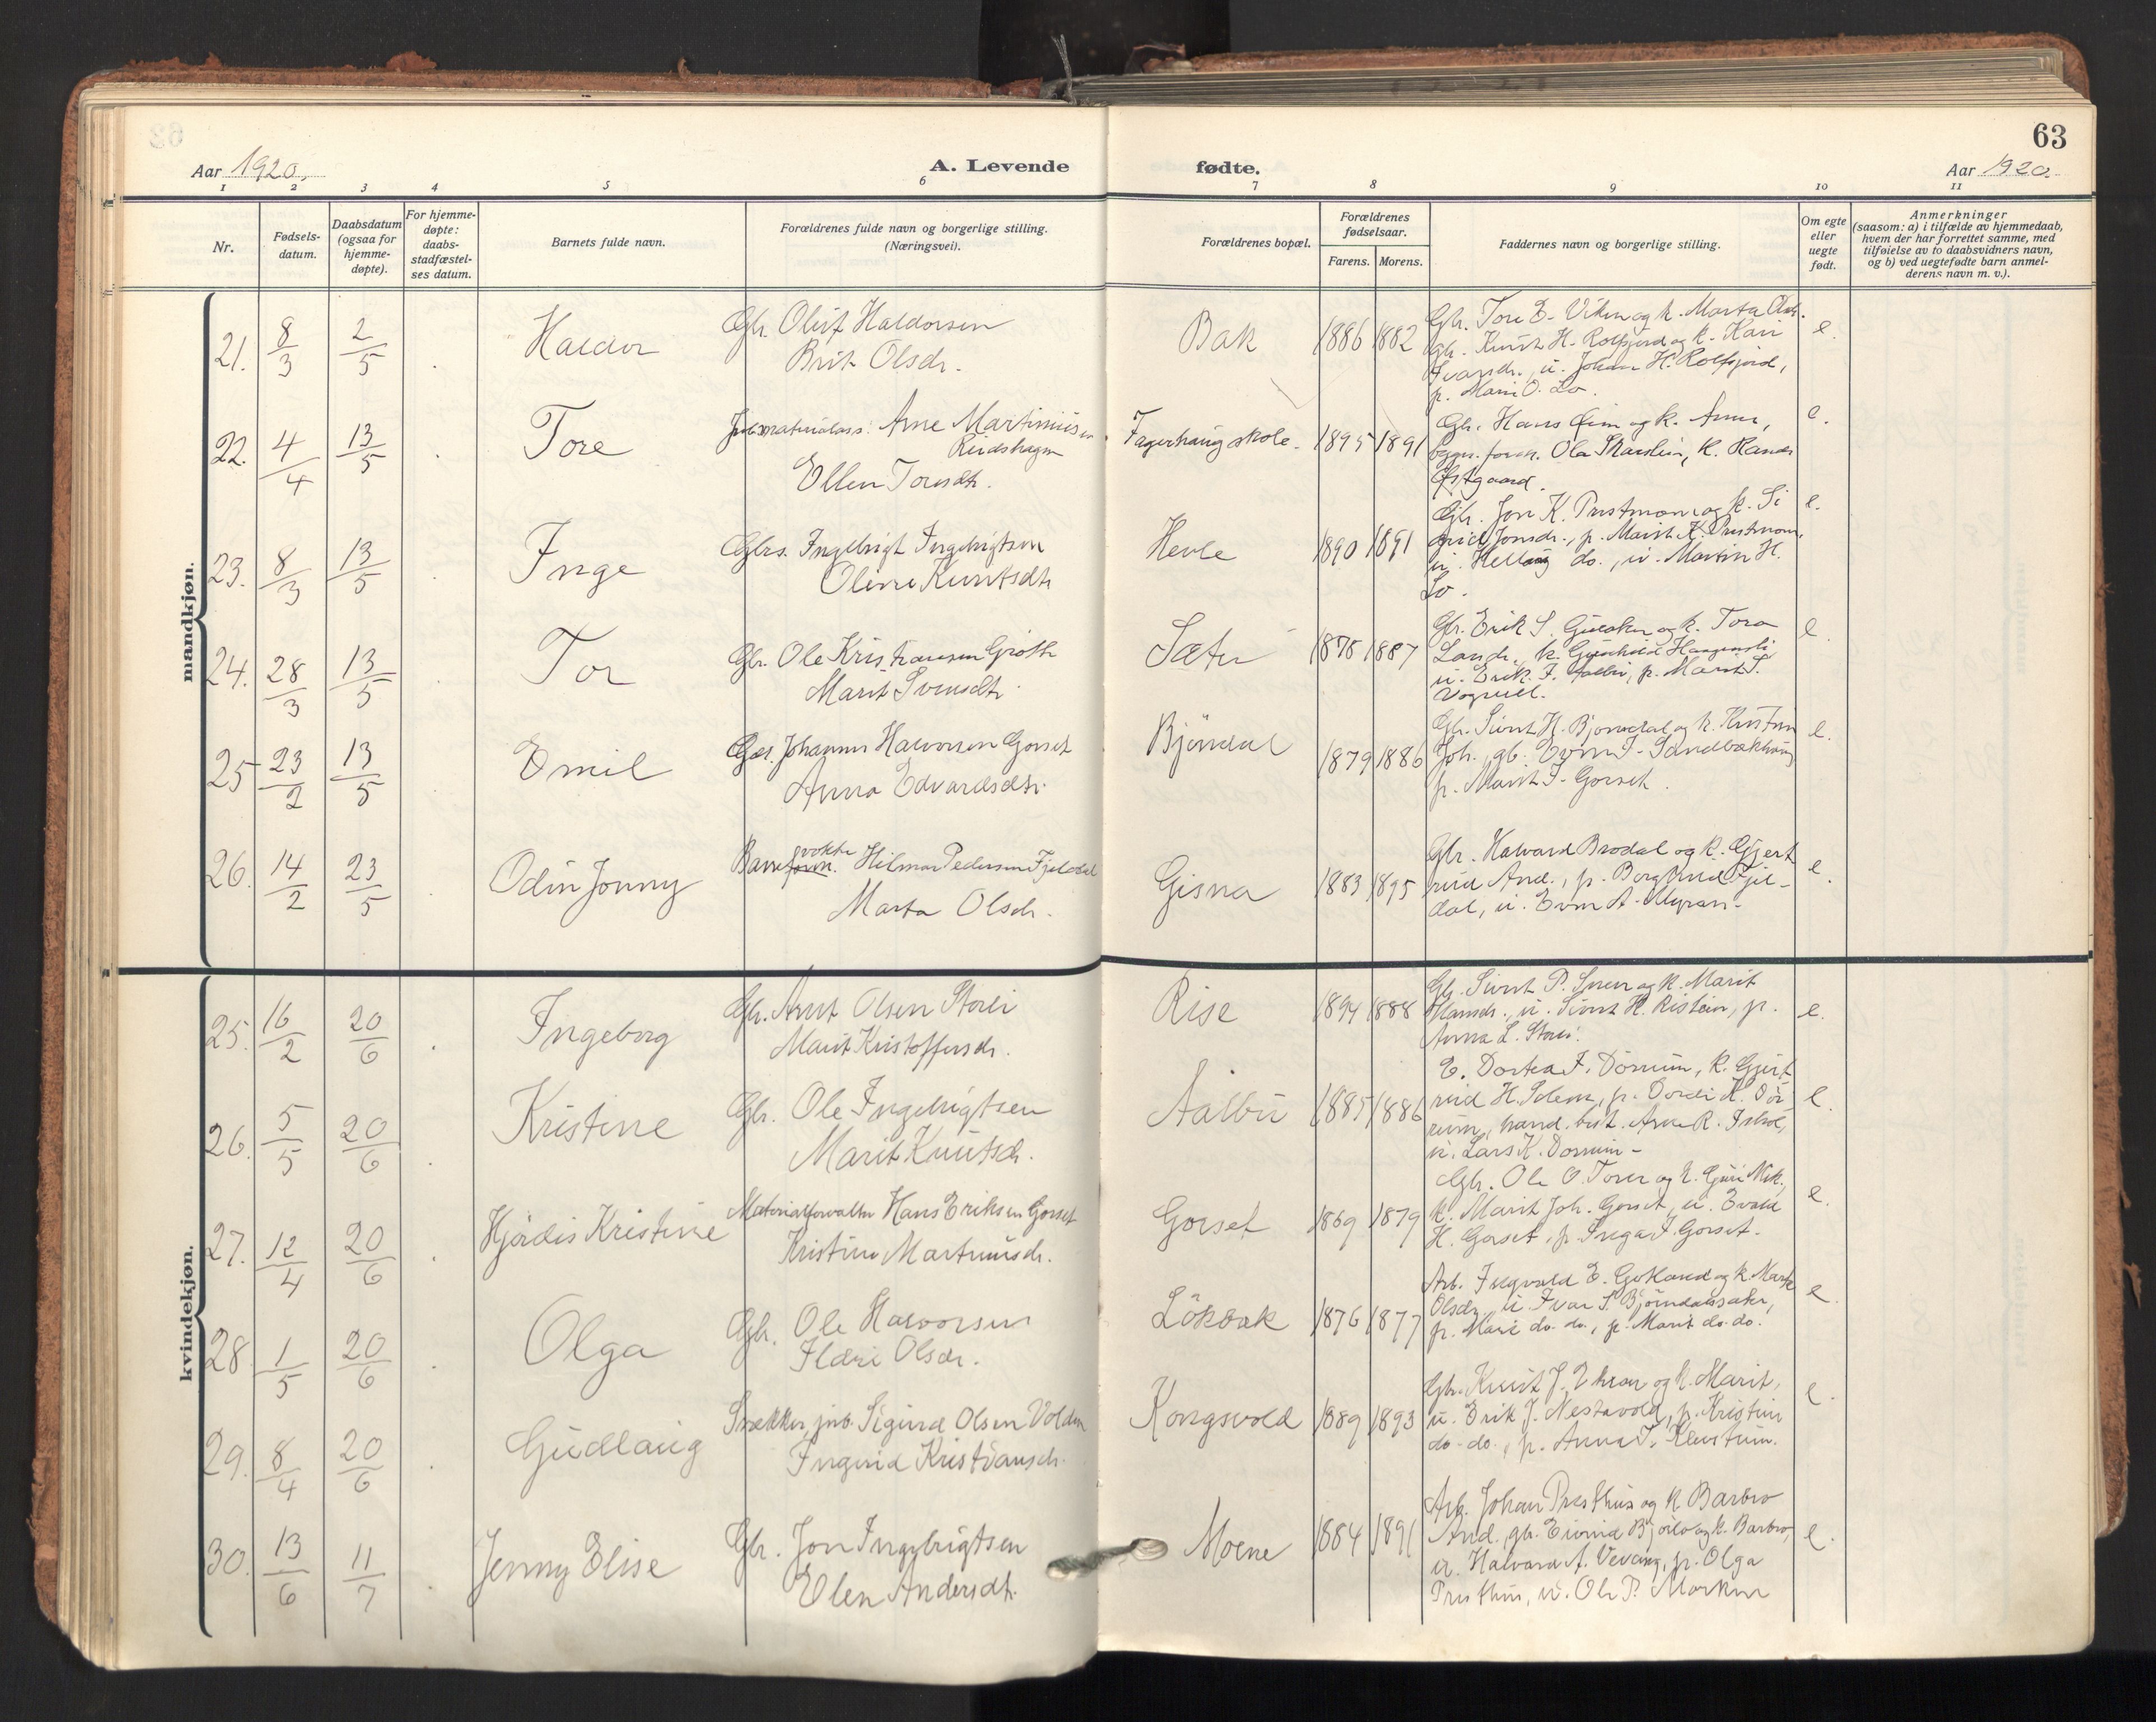 63
Aar 1920.
A. Levende
fødte.
Aar 1920.
1 2 3 4 5 6 7 8 9 10 11
Nr.
Fødsels-
datum.
Daabsdatum
(ogsaa for
hjemme-
døpte).
For hjemme-
døpte:
daabs-
stadfæstel-
ses datum.
Barnets fulde navn.
Forældrenes fulde navn og borgerlige stilling.
(Næringsvei).
Forældrenes bopæl.
Forældrenes
fødselsaar.
Farens. Morens.
Faddernes navn og borgerlige stilling.
Om egte
eller
uegte
født.
Anmerkninger
(saasom: a) i tilfælde av hjemmedaab,
hvem der har forrettet samme, med
tilføielse av to daabsvidners navn,
og b) ved uegtefødte barn anmel-
derens navn m. v.).
mandkjøn.
21. 8/3 2/5 Haldor
Gbr. Oluf Haldorsen
Brit Olsdr.
Bak 1886 1882
Gbr. Tore E. Viken og k. Marta Olsdr.
gbr. Knut H. Rolfsjord og k. Kari
Ivarsdr., u. Johan H. Rolfsjord,
p. Mari O. Lo.
e.
22. 4/4 13/5 Tore
Arne Martinusen
Ellen Toresdtr.
Fagerhaug skole. 1895 1891
Gbr. Hans Eim og k. Anne,
Ola Skarslien, k. Randi
Østgaard.
e.
23. 8/3 13/5 Inge
Gbrs. Ingebrigt Ingebrigtsen
Oline Knutsdtr
Hevle 1890 1891
Gbr. Jon K. Prestmoen og k. Si
grid Jonsdr., p. Marit K. Prestmoen,
u. Hellaug do., u. Martin H.
Lo.
e.
24. 28/3 13/5 Tor
Gbr. Ole Kristiansen Grøtte
Marit Svensdtr.
Sæter 1878 1887
Gbr. Erik S. og k. Tora
Larsdr., k. Gunhild
u. Erik F. Aalbu, p. Marit S.
Vognill.
e.
25 23/2 13/5 Emil
Johannes Halvorsen Gorset
Anna Edvardsdtr.
Bjørndal 1879 1886
Gbr. Sivert H. Bjørndal og k. Kristin
Joh., gb. Even I. Sandbækhaug
p. Marit I. Gorset.
e.
26. 14/2 23/5 Odin Jonny
Banevokter Hilmar Pedersen Fjeldal
Marta Olsdr.
Gisna 1883 1895
Gbr. Halvard Brodal og k. Gjert
rud And., p. Borghild Fjel-
dal, u. Even A. Myran.
e.
kvindekjøn.
25. 16/2 20/6 Ingeborg
Gbr. Arnt Olsen Storli
Marit Kristoffersdr.
Rise 1894 1888
Gbr. Sivert P. og k. Marit
Hansdr., u. Sivert H. Ristein, p.
Anna L. Storli.
e.
26. 5/5 20/6 Kristine
Gbr. Ole Ingebrigtsen
Marit Knutsdr.
Aalbu 1885 1886
E. Dortea I. Dørrum, k. Gjert
rud H. Solem, p. Dordi K. Dør
rum, hand. best. Arne R.
u. Lars K. Dørrum.
e.
27. 12/4 20/6 Hjørdis Kristine
Materialforvalter Hans Eriksen Gorset
Kristine Martinusdr.
Gorset 1869 1879
Gbr. Ole O. og k. Guri Nik.,
k. Marit Joh. Gorset, u. Evald
H. Gorset, p. Inga I. Gorset.
e.
28. 1/5 20/6 Olga
Gbr. Ole Halvorsen
Ildri Olsdr.
Løkbak 1876 1877
Arb. Ingvald E. Gotland og k. Marta
Olsdr., u. Ivar S. Bjørndalssæter,
p. Mari do. do., p. Marit do. do.
e.
29. 8/4 20/6 Gudlaug
Snekker, jrnb. Sigurd Olsen Volden
Ingrid Kristiansdr.
Kongsvold 1889 1893
Gbr. Knut J. og k. Marit,
u. Erik J. Nestavold, p. Kristine
do. do., p. Anna I.
e.
30. 13/6 11/7 Jenny Elise
Gbr. Jon Ingebrigtsen
Elen Andersdtr.
Moene 1884 1891
Arb. Johan Presthus og k. Barbro
And., gb. Eivind Bjørlo og k. Barbro,
u. Halvard A. Vevang, p. Olga
Presthus, u. Ole P. Morken
e.